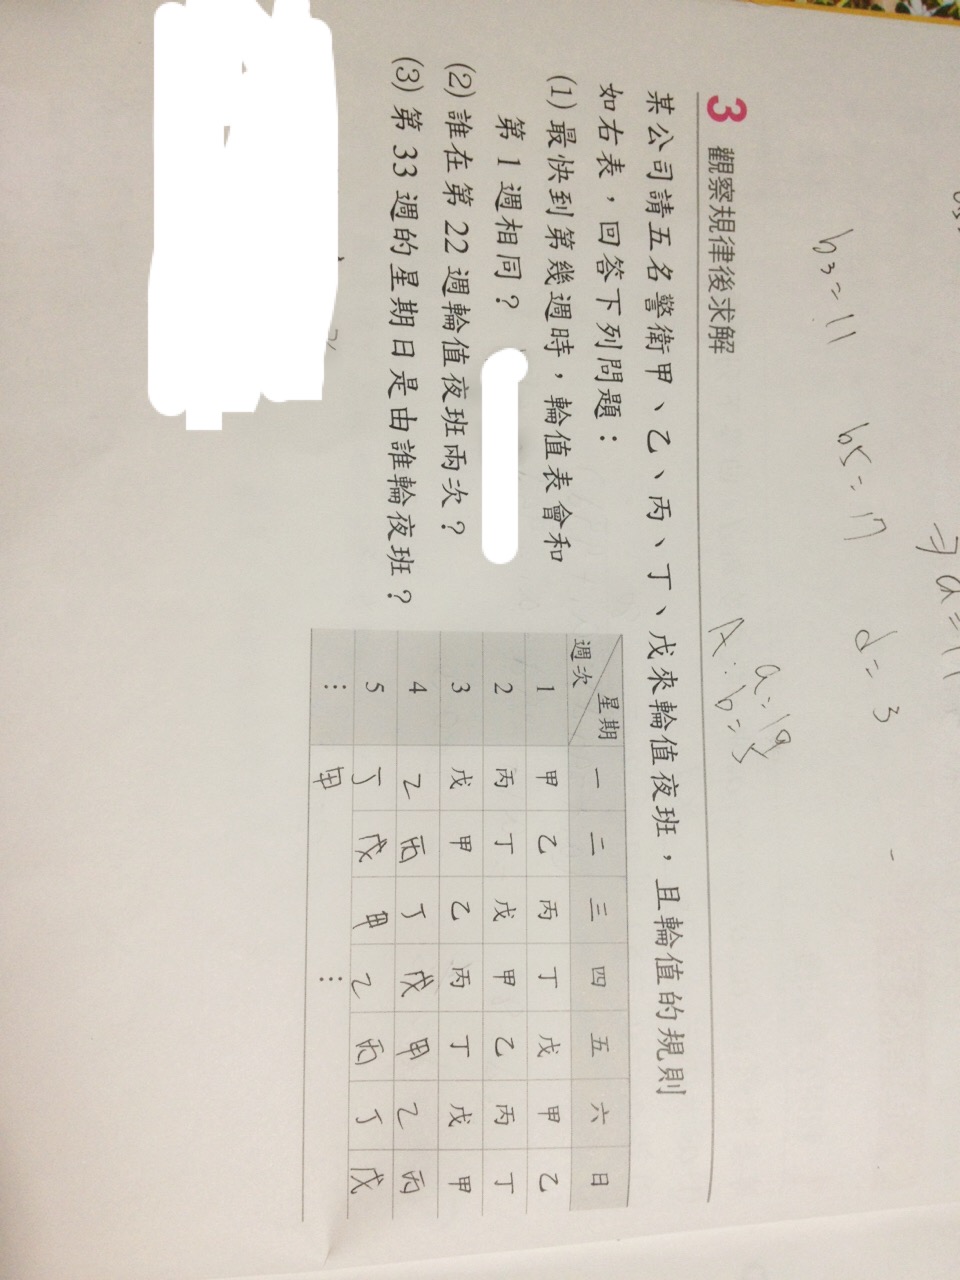 b3=11 b5=17 d=3
A: a=19
b=5
3 觀察規律後求解
某公司請五名警衛甲、乙、丙、丁、戊來輪值夜班，且輪值的規則
如右表，回答下列問題：
(1) 最快到第幾週時，輪值表會和
第 1 週相同？
(2) 誰在第 22 週輪值夜班兩次？
(3) 第 33 週的星期日是由誰輪夜班？
星期
週次 一 二 三 四 五 六 日
1 甲 乙 丙 丁 戊 甲 乙
2 丙 丁 戊 甲 乙 丙 丁
3 戊 甲 乙 丙 丁 戊 甲
4 乙 丙 丁 戊 甲 乙 丙
5 丁 戊 甲 乙 丙 丁 戊
⋮ 甲 ⋮